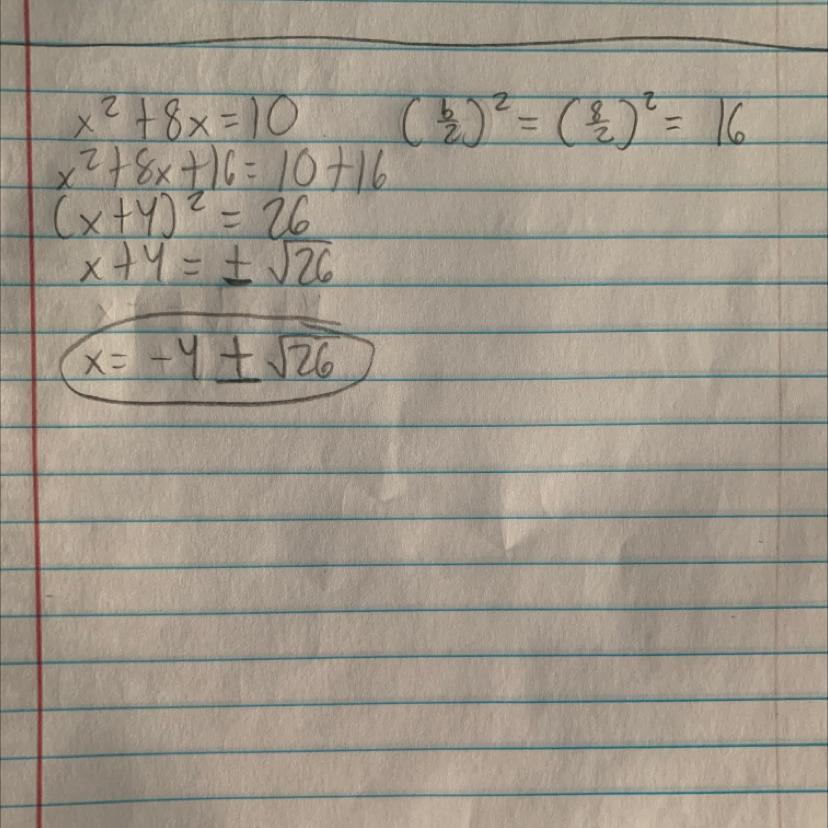 x² + 8x = 10 (b/2)² = (8/2)² = 16
x² + 8x + 16 = 10 + 16
(x + 4)² = 26
x + 4 = ± √26
x = -4 ± √26